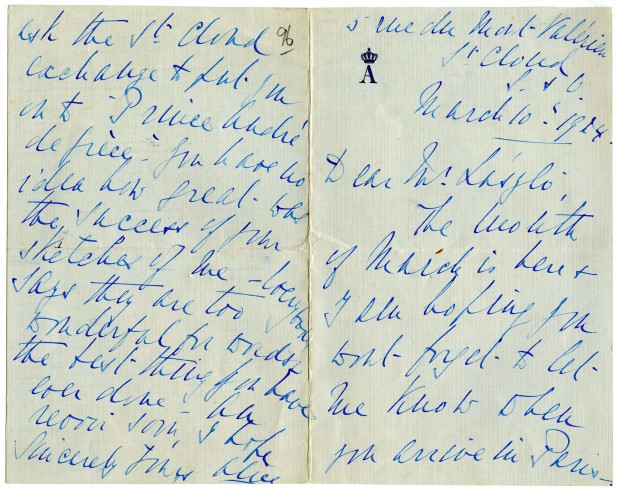 5 rue du Mont-Valérien
St Cloud
S. & O.
A
March 10th 1924.
Dear Mr. László,
The month
of March is here &
I am hoping you
wont forget to let
me know when
you arrive in Paris—
96
ask the St. Cloud
exchange to put you
on to "Prince André
de Grèce"— You have no
idea how great was
the success of your
sketches of me — Everybody
says they are too
wonderful for words &
the best thing you have
ever done — Au
revoir soon, I hope
Sincerely Yours Alice